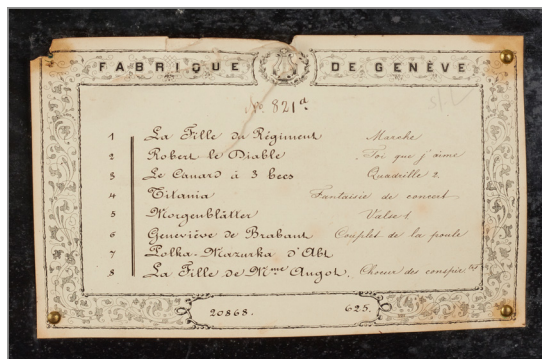 FABRIQUE DE GENÈVE
No. 821a
1 La Fille du Régiment Marche
2 Robert le Diable Toi que j'aime
3 Le Canard à 3 becs Quadrille 2
4 Titania Fantaisie de concert
5 Morgenblätter Valse 1
6 Geneviève de Brabant Couplet de la poule
7 Polka-Mazurka d'Abt
8 La Fille de Mme Angot. Choeur des conspir.
20868. 625.